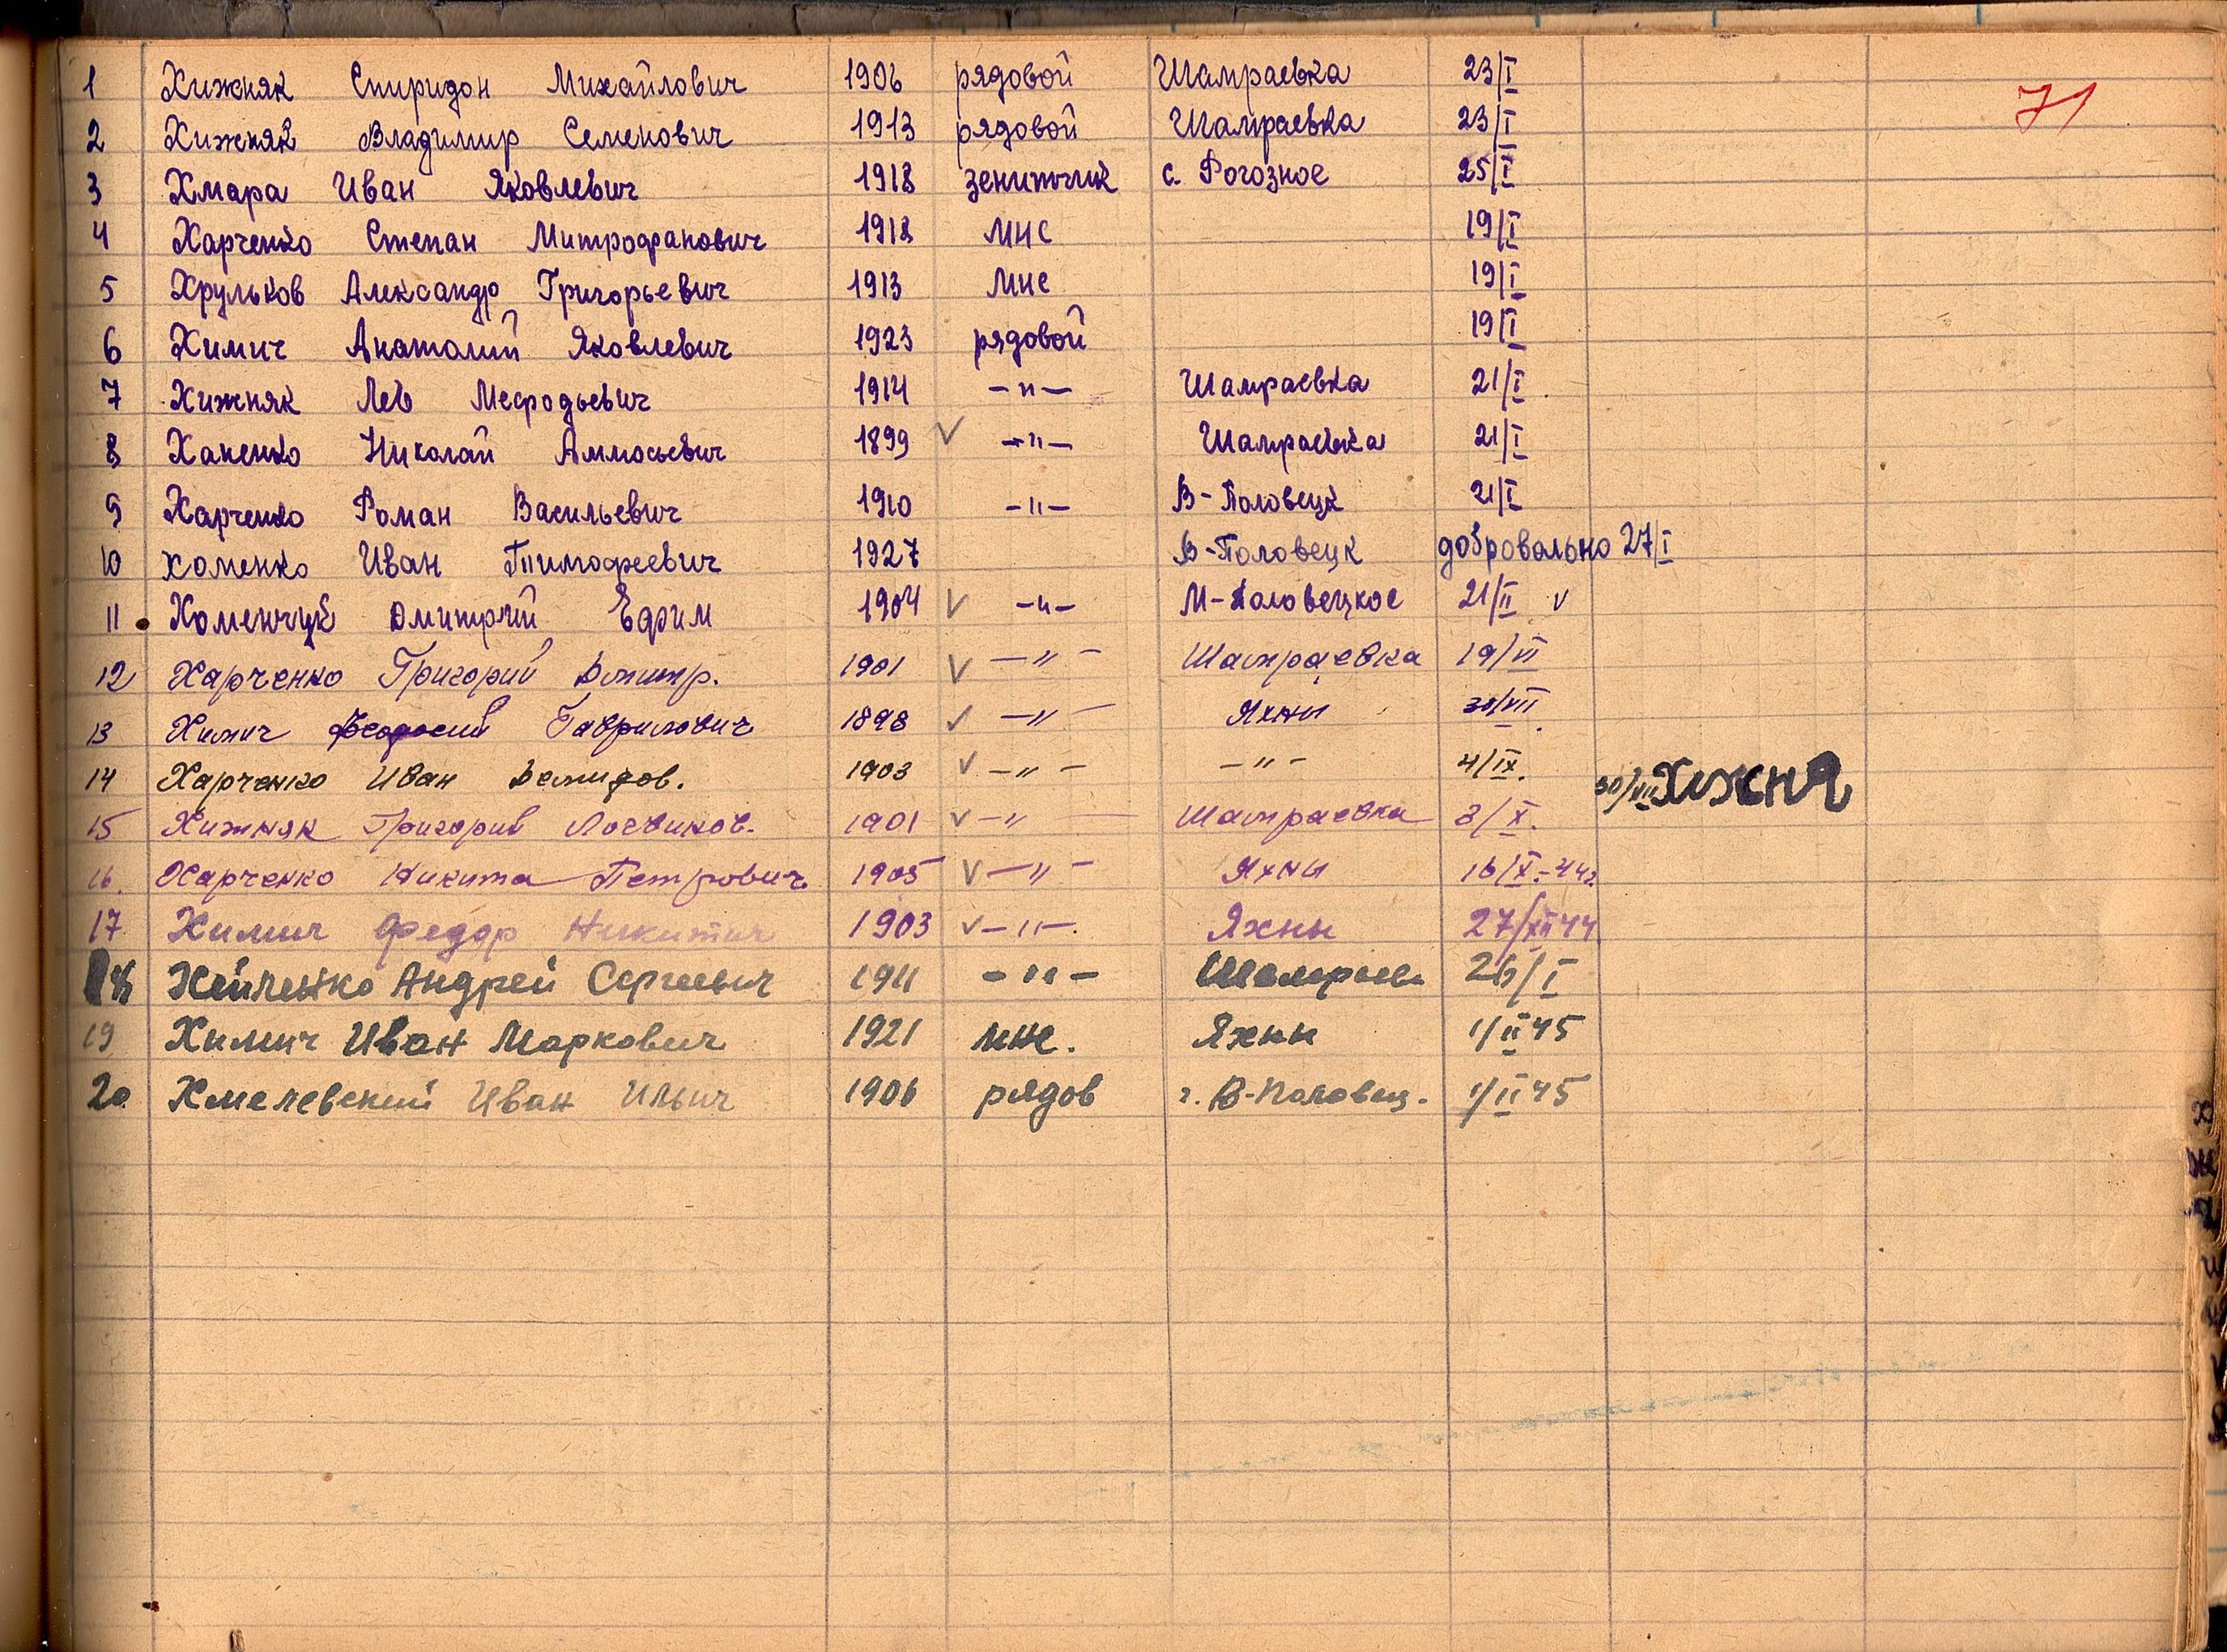 71
1 Хижняк Спиридон Михайлович 1906 рядовой Шамраевка 23/I
2 Хижняк Владимир Семенович 1913 рядовой Шамраевка 23/I
3 Хмара Иван Яковлевич 1918 зенитчик с. Рогозное 25/I
4 Харченко Степан Митрофанович 1918 мнс 19/I
5 Хрульков Александр Григорьевич 1913 мнс 19/I
6 Химич Анатолий Яковлевич 1923 рядовой 19/I
7 Хижняк Лев Мефодьевич 1914 -"- Шамраевка 21/I
8 Ханенко Николай Аммосьевич 1899 V -"- Шамраевка 21/I
9 Харченко Роман Васильевич 1910 -"- В-Половецк 21/I
10 Хоменко Иван Тимофеевич 1927 В-Половецк добровально 27/I
11 Хоменчук Дмитрий Ефрим 1904 V -"- М-Половецкое 21/II V
12 Харченко Григорий Дмитр. 1901 V -"- Шамраевка 19/VI
13 Химич Феодосий Гаврилович 1898 V -"- Яхны 30/VII.
14 Харченко Иван Демидов. 1903 V -"- -"- 4/IX. 30/VII Хижня
15 Хижняк Григорий 1901 V -" Шамраевка 3/X.
16. Харченко Никита Петрович 1905 V -"- Яхны 16/X.-44г.
17 Химич Федор Никитич 1903 V -"-. Яхны 27/XII 44
18 Хейленко Андрей Сергеевич 1911 -"- Шамраев. 26/I
19 Химич Иван Маркович 1921 мнс. Яхны 1/II 45
20 Хмелевский Иван Ильич 1906 рядов г. В-Половец. 1/II 45